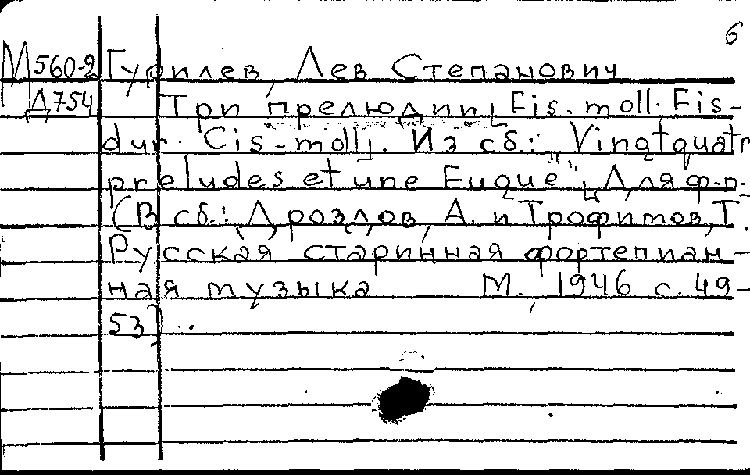 6
М560-2 Гурилев, Лев Степанович
Д754 Три прелюдии, Fis. moll. Fis-
dur. Cis-moll]. Из сб.: „Vingtquatr
preludes et une Fugue". [Для ф-п.
(В сб.: Дроздов, А. и Трофимов, Т.
Русская старинная фортепиан-
ная музыка М. 1946 с. 49-
53).